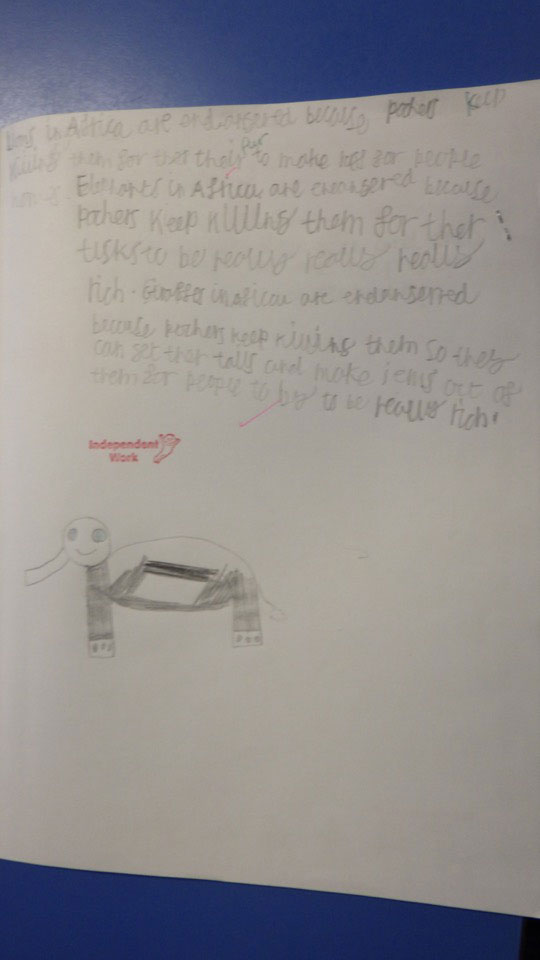 Lions in Africa are endangered because pochers keep
killing them for ther their fur to make for people
Elephants in Africa are endangered because
pochers keep killing them for ther
tusks to be really really really
rich. in are endanserred
because pochers keep killing them so they
can get ther tails and make items out of
them for people to by to be really rich.
Independent
Work